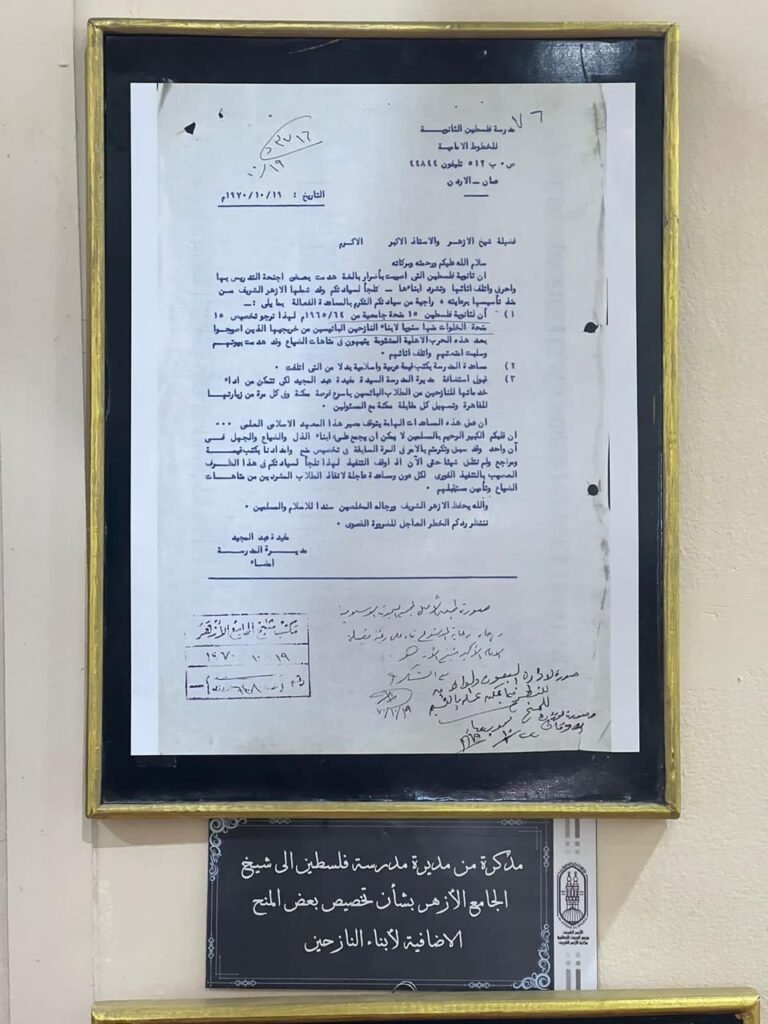 ٧٦
مدرسة فلسطين الثانوية
للخطوط الامامية
ص ٠ ب ٥١٢ تليفون ٤٤٨٤٤
عمان ــ الاردن
التاريخ : ١٩٧٠/١٠/١٩م
فضيلة شيخ الازهر والاستاذ الاكبر الاكرم
سلام الله عليكم ورحمته وبركاته
ان ثانوية فلسطين التى اصيبت بأضرار بالغة هدمت بعض اجنحة التدريس بها
واحرق واتلف اثاثها وتشرد ابناءها ــ تلجأ لسيادتكم وقد شملها الازهر الشريف من
منذ تأسيسها برعايته ٠ راجية من سيادتكم التكرم بالمساعدة الفعالة بما يلى :ــ
١) أن لثانوية فلسطين ١٥ منحة جامعية من ١٩٦٥/٦٤م لهذا نرجو تخصيص ١٥
منحة سنويا لابناء النازحين البائسين من خريجيها الذين اصبحوا
بعد هذه الحرب الاهلية المشئومة يتيهون فى متاهات الضياع وقد هدمت بيوتهم
وسلبت امتعتهم واتلف اثاثهم ٠
٢) مساعدة المدرسة بكتب قيمة عربية واسلامية بدلا من التى اتلفت ٠
٣) قبول استضافة مديرة المدرسة السيدة مفيدة عبد المجيد لكى تتمكن من اداء
خدماتها للنازحين من الطلاب البائسين باسرع فرصة ممكنة وفى كل مرة من زيارتها
للقاهرة وتسهيل كل مقابلة ممكنة مع المسئولين ٠
ان على هذه المساعدات الهامة يتوقف مصير هذا المعهد الاسلامى العلمى ٠٠٠
ان قلبكم الكبير الرحيم بالمسلمين لا يمكن أن يجمع على ابناء الذل والضياع والجهل فى
آن واحد وقد سبق وتكرمتم بالامر فى المرة السابقة فى تخصيص منح وامدادنا بكتب قيمة
ومراجع ولم نتلق شيئا حتى الآن اذ اوقف التنفيذ لهذا نلجأ لسيادتكم فى هذا الظرف
العصيب بالتنفيذ الفورى لكل عون ومساعدة عاجلة لانقاذ الطلاب المشردين من متاهات
الضياع وتأمين مستقبلهم ٠
والله يحفظ الازهر الشريف ورجاله المخلصين سندا للاسلام والمسلمين ٠
ننتظر ردكم الخطر العاجل للضرورة القصوى ٠
مفيدة عبد المجيد
مديرة المدرسة
امضاء
مكتب شيخ الجامع الأزهر
١٩ ١٠ ١٩٧٠
مذكرة من مديرة مدرسة فلسطين الى شيخ
الجامع الأزهر بشأن تخصيص بعض المنح
الاضافية لأبناء النازحين
الأزهر الشريف
مجمع البحوث الإسلامية
مكتبة الأزهر الشريف